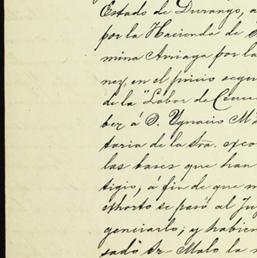 Estado de Durango, a
por la Hacienda de
mina Arriaga por la
nes, en el juicio segui
de la "Labor de
bez á D. Ygnacio M
taria de la Sra. exco
las bases que han
tigio, á fin de que
exhorto se pasó al Ju
genciarlo; y habien
sado Sr. Malo la